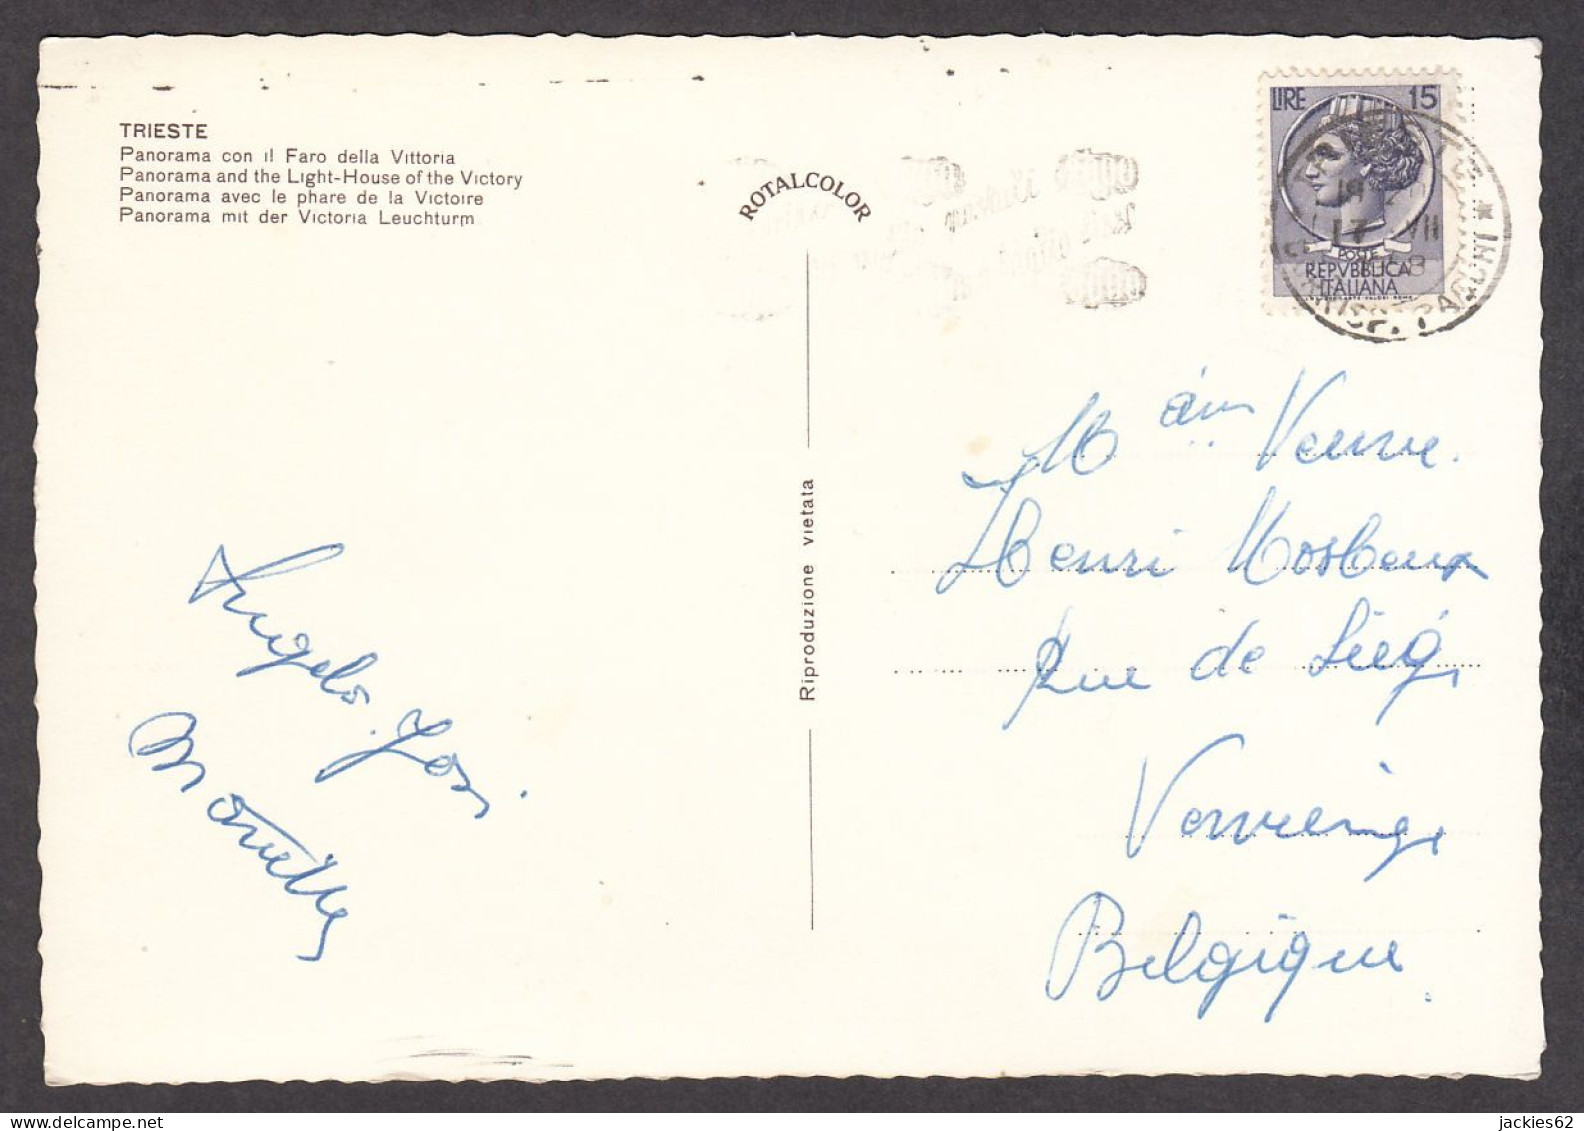 TRIESTE
Panorama con il Faro della Vittoria
Panorama and the Light-House of the Victory
Panorama avec le phare de la Victoire
Panorama mit der Victoria Leuchturm
ROTALCOLOR
Riproduzione vietata
LIRE 15
POSTE
REPVBBLICA
ITALIANA
17 VII
CORRISP. PACCHI *
Angelo. Josi
M
Henri Mosbeux
Rue de Liég
Belgique.
jackies62